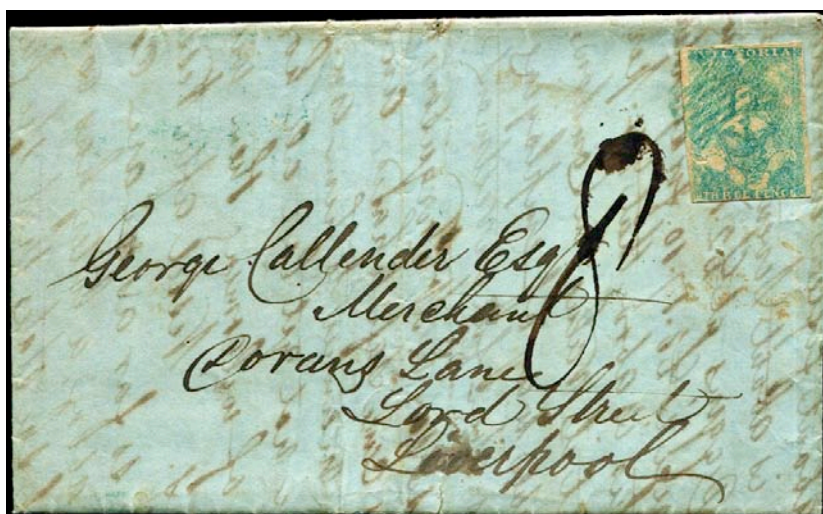 VICTORIA
THREE PENCE
8
George Callender Esq
Merchant
Dorans Lane
Lord Street
Liverpool